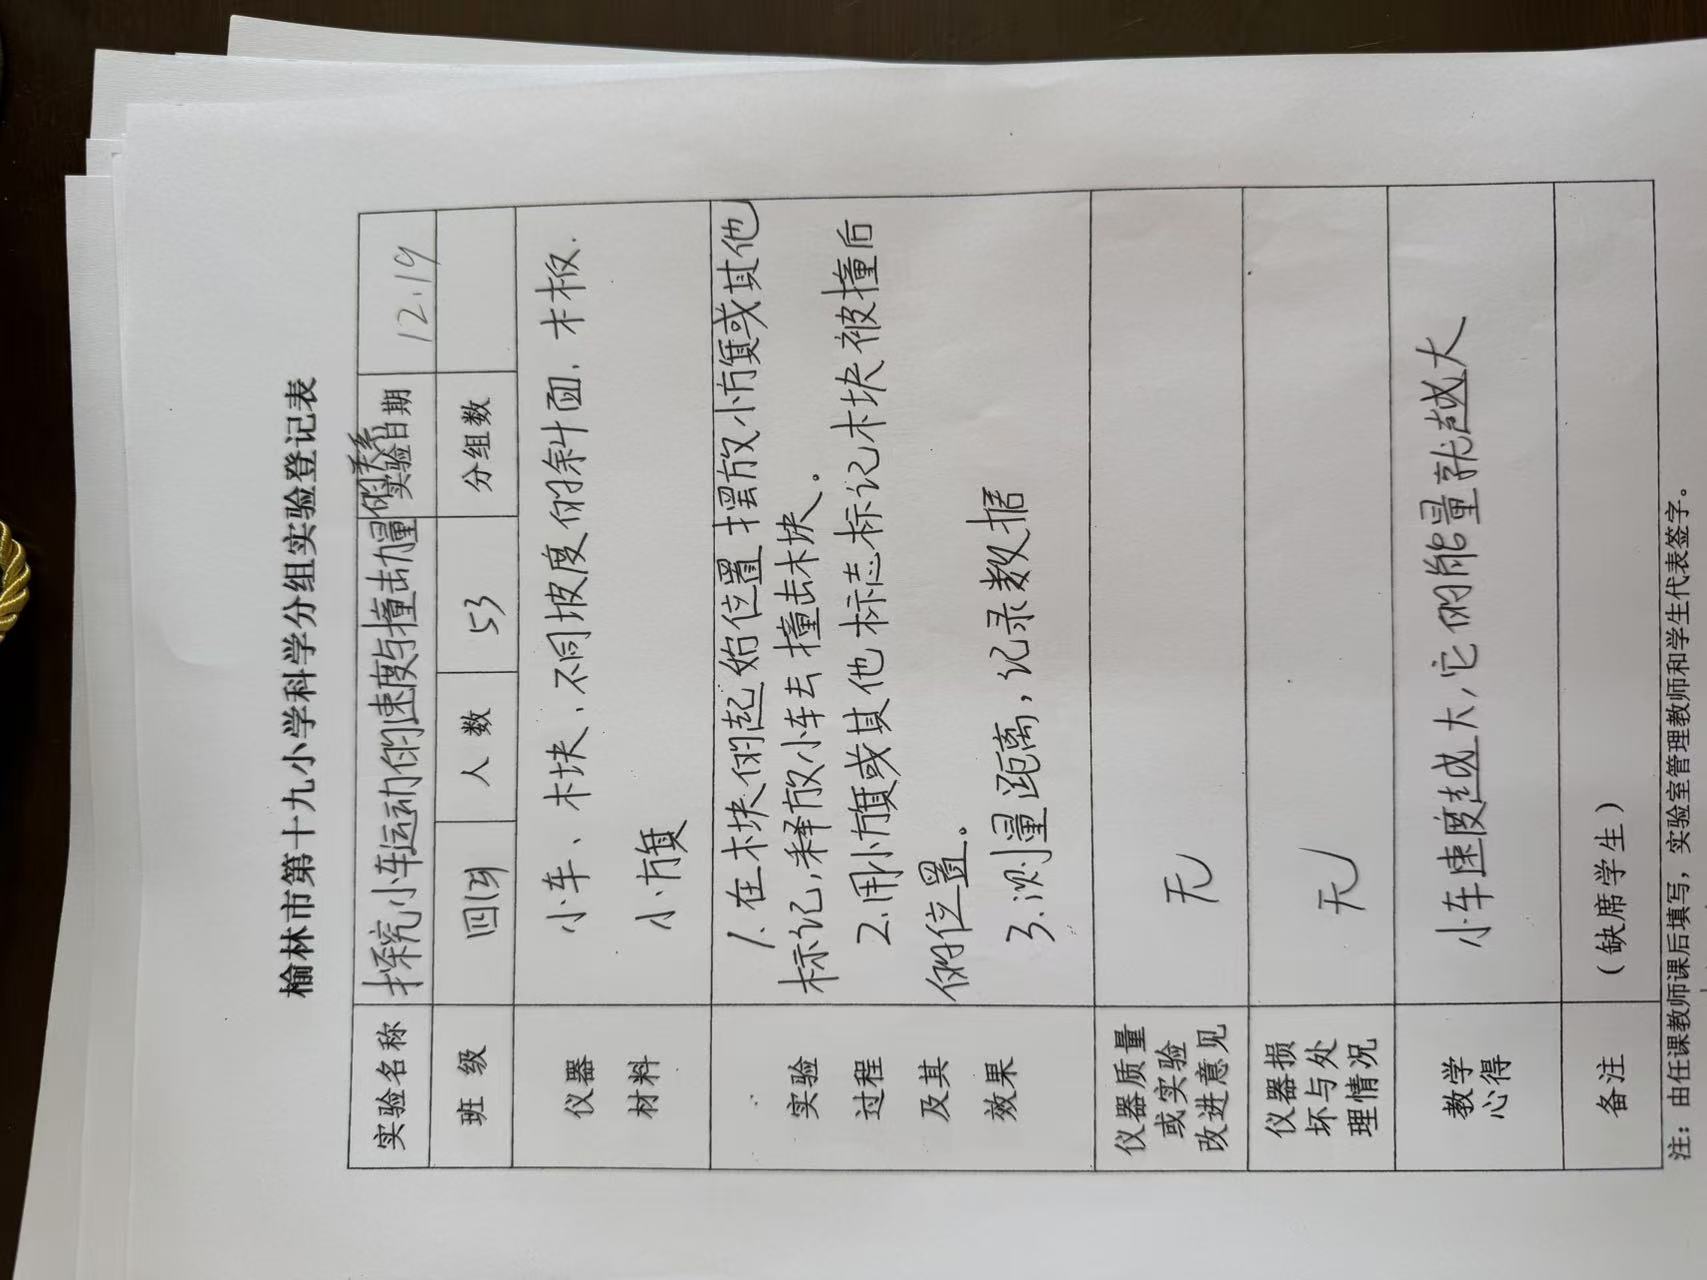 榆林市第十九小学科学分组实验登记表
实验名称 探究小车运动的速度与撞击力量的关系 实验日期 12.19
班 级 四(4) 人 数 53 分组数
仪器 小车、木块、不同坡度的斜面、木板.
材料 小旗
实验 1.在木块的起始位置摆放小旗或其他
过程 标记,释放小车去撞击木块.
及其 2.用小旗或其他标志标记木块被撞后
效果 的位置。
3.测量距离,记录数据
仪器质量
或实验 无
改进意见
仪器损
坏与处 无
理情况
教学
心得 小车速度越大,它的能量就越大
备注 (缺席学生)
注:由任课教师课后填写,实验室管理教师和学生代表签字。